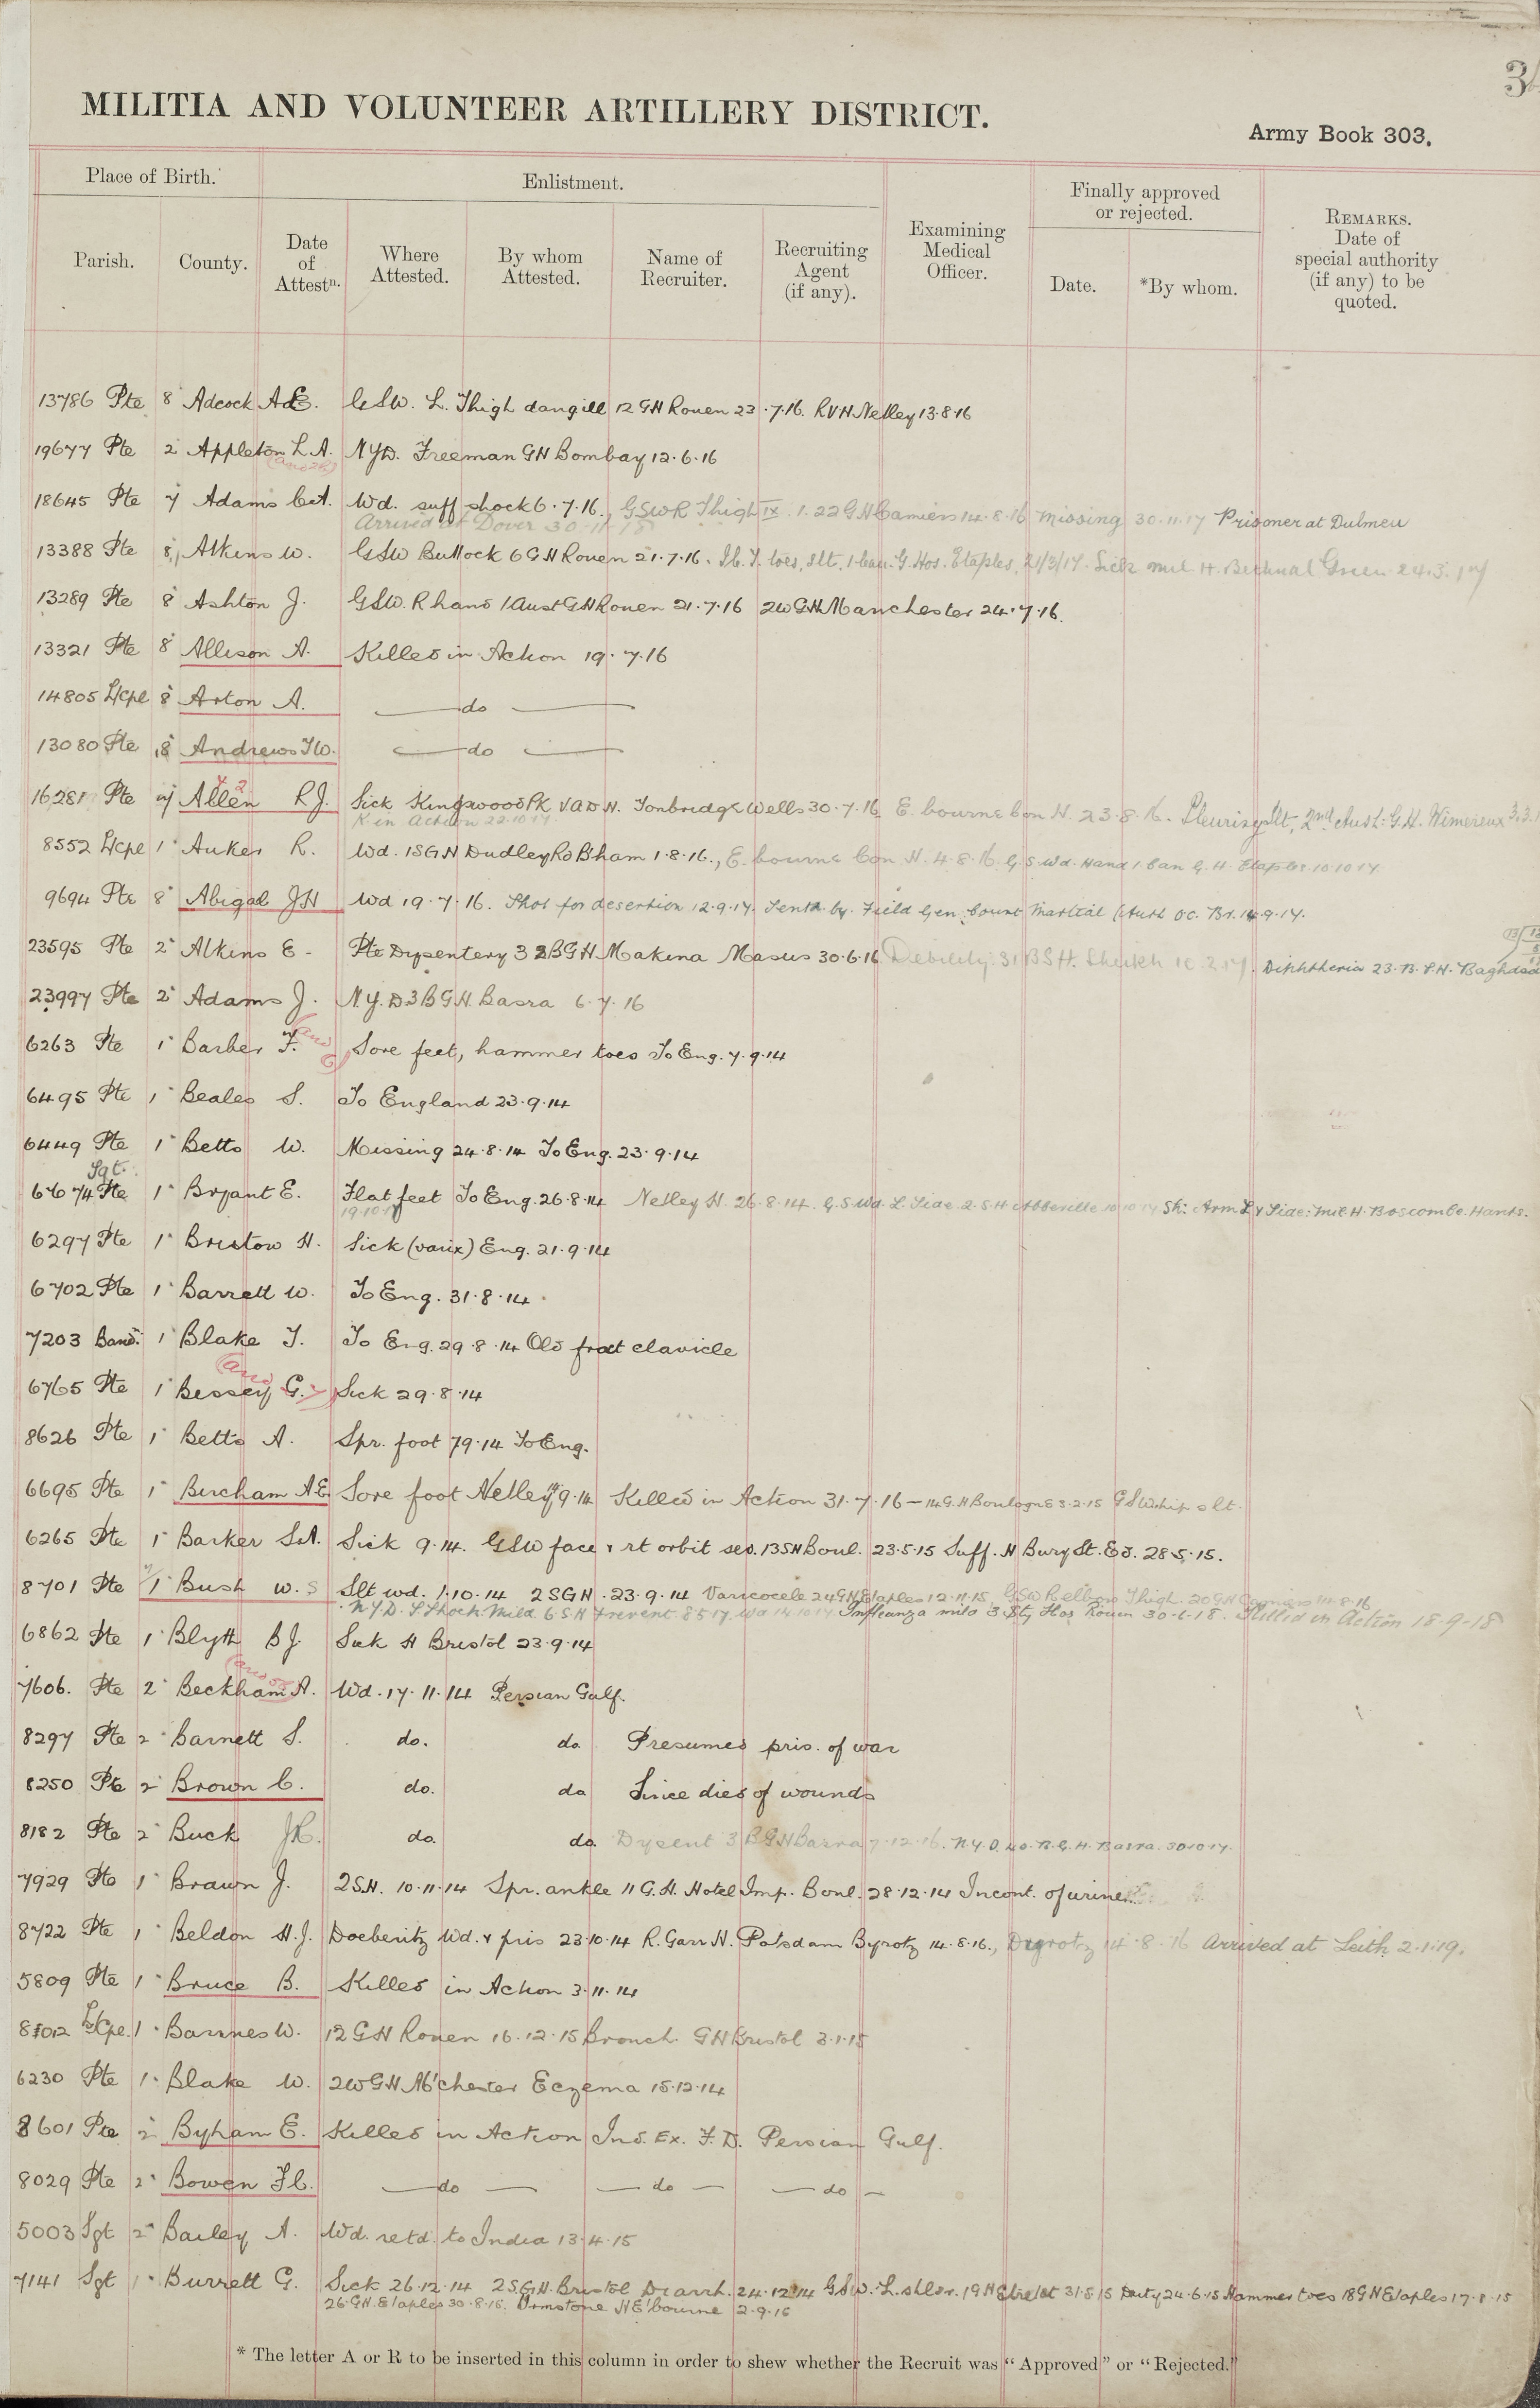 34
MILITIA AND VOLUNTEER ARTILLERY DISTRICT.
Army Book 303.
Place of Birth.
Enlistment.
Finally approved or rejected.
Parish.
County.
Date of Attestn.
Where Attested.
By whom Attested.
Name of Recruiter.
Recruiting Agent (if any).
Examining Medical Officer.
Date.
*By whom.
REMARKS. Date of special authority (if any) to be quoted.
13786 Pte 8 Adcock A.E. GSW. L. Thigh dang ill 12 GH Rouen 23.7.16. RVH Netley 13.8.16
19677 Pte 2 Appleton L.A. NYD. Freeman GH Bombay 12.6.16
18645 Pte 7 Adams C.A. Wd. suff shock 6.7.16. GSW R Thigh IX. 1.22 GH Camiers 14.8.16 Missing 30.11.17 Prisoner at Dulmen
Arrived at Dover 30.11.18
13388 Pte 8 Atkins W. GSW Buttock 6 GH Rouen 21.7.16. toes, slt. 1 Can. G. Hos. Etaples, 21/3/17. Sick Mil H. Bethnal Green 24.3.17
13289 Pte 8 Ashton J. GSW. R hand 1 Aust GH Rouen 21.7.16 2W GH Manchester 24.7.16.
13321 Pte 8 Allison A. Killed in Action 19.7.16
14805 L/Cpl 8 Arton A. do
13080 Pte 8 Andrews T.W. do
16281 Pte 7 Allen R.J. Sick Kingswood PK VAD H. Tonbridge Wells 30.7.16 E.bourne Con H. 23.8.16. Pleurisy slt, 2nd Aust: G.H. Wimereux 3.3.1
K in Action 22.10.17.
8552 L/Cpl 1 Auker R. Wd. 1 SGH Dudley Rd B'ham 1.8.16., E.bourne Con H. 4.8.16. G.S.Wd. Hand 1 Can G.H. Etaples 10.10.17.
9694 Pte 8 Abigal JH Wd 19.7.16. Shot for desertion 12.9.17. Sent. by Field Gen. Court Martial (Auth O.C. Bn. 14.9.17.
23595 Pte 2 Atkins E. Pte Dysentery 3 BGH Makina Masus 30.6.16 Debility. 31 BSH. Sheikh 10.2.17. Diphtheria 23.B.S.H. Baghdad
23997 Pte 2 Adams J. N.Y.D 3 B G H. Basra 6.7.16
6263 Pte 1 Barber F. Sore feet, hammer toes To Eng. 7.9.14
6495 Pte 1 Beales S. To England 23.9.14
6449 Pte 1 Betts W. Missing 24.8.14 To Eng. 23.9.14
Sgt.
6674 Pte 1 Bryant E. Flat feet To Eng. 26.8.14 Netley H. 26.8.14. G.S.Wd. L. Side 2.S.H Abbeville 10.10.17 Sh: Arm L & Side: Mil H. Boscombe. Hants.
19.10.17
6297 Pte 1 Bristow H. Sick (varix) Eng. 21.9.14
6702 Pte 1 Barrett W. To Eng. 31.8.14
7203 Band. 1 Blake T. To Eng. 29.8.14 Old fract clavicle
6765 Pte 1 Bessey G. Sick 29.8.14
8626 Pte 1 Betts A. Spr. foot 7.9.14 To Eng.
6695 Pte 1 Bircham A.E. Sore foot Netley 9.14 Killed in Action 31.7.16 – 14 G.H Boulogne 3.2.15 GSW hip slt.
6265 Pte 1 Barker S.A. Sick 9.14. GSW face & rt orbit sev. 13 SH Boul. 23.5.15 Suff. H Bury St. Ed. 28.5.15.
8701 Pte 1 Bush W.S Slt wd. 1.10.14 2 SGH. 23.9.14 Varicocele 24 GH Etaples 12.11.15, GSW R elbow Thigh. 20 GH Camiers 11.8.16
N.Y.D. S Shock Mild. 6.S.H Frevent. 8.5.17. Wd 14.10.17. Influenza mild 3 Sty Hos Rouen 30.6.18. Killed in Action 18-9-18
6862 Pte 1 Blyth B.J. Sick H Bristol 23.9.14
7606. Pte 2 Beckham A. Wd. 17.11.14 Persian Gulf.
8297 Pte 2 Barnett S. do. do Presumed pris. of war
8250 Pte 2 Brown C. do. do Since died of wounds
8182 Pte 2 Buck JR. do. do. Dysent 3 BGH Basra 7.12.16. N.Y.D. 40.B.G.H. Basra. 30.10.17.
7929 Pte 1 Brawn J. 2 S.H. 10.11.14 Spr. ankle 11 G.H. Hotel Imp. Boul. 28.12.14 Incont. of urine
8722 Pte 1 Beldon H.J. Doeberitz Wd. & pris 23.10.14 R. Garr H. Potsdam Byrotz 14.8.16., Dyrotz 14.8.16 Arrived at Leith 2.1.19.
5809 Pte 1 Bruce B. Killed in Action 3.11.14
8012 L/Cpl. 1 Barnes W. 12 GH Rouen 16.12.15 Bronch. GH Bristol 3.1.15
6230 Pte 1 Blake W. 2W GH M'chester Eczema 15.12.14
8601 Pte 2 Byham E. Killed in Action Ind. Ex. F.D. Persian Gulf.
8029 Pte 2 Bowen F.C. do do do
5003 Sgt 2 Bailey A. Wd. retd. to India 13.4.15
7141 Sgt 1 Burrett G. Sick 26.12.14 2 S.G.H. Bristol Diarrh. 24.12.14 G.S.W. L. shldr. 1 G H Etretat 31.5.15 Duty 24.6.15 Hammer toes 18 GH Etaples 17.8.15
26 GH. Etaples 30.8.15. Urmstone H E'bourne 2.9.16
* The letter A or R to be inserted in this column in order to shew whether the Recruit was "Approved" or "Rejected."